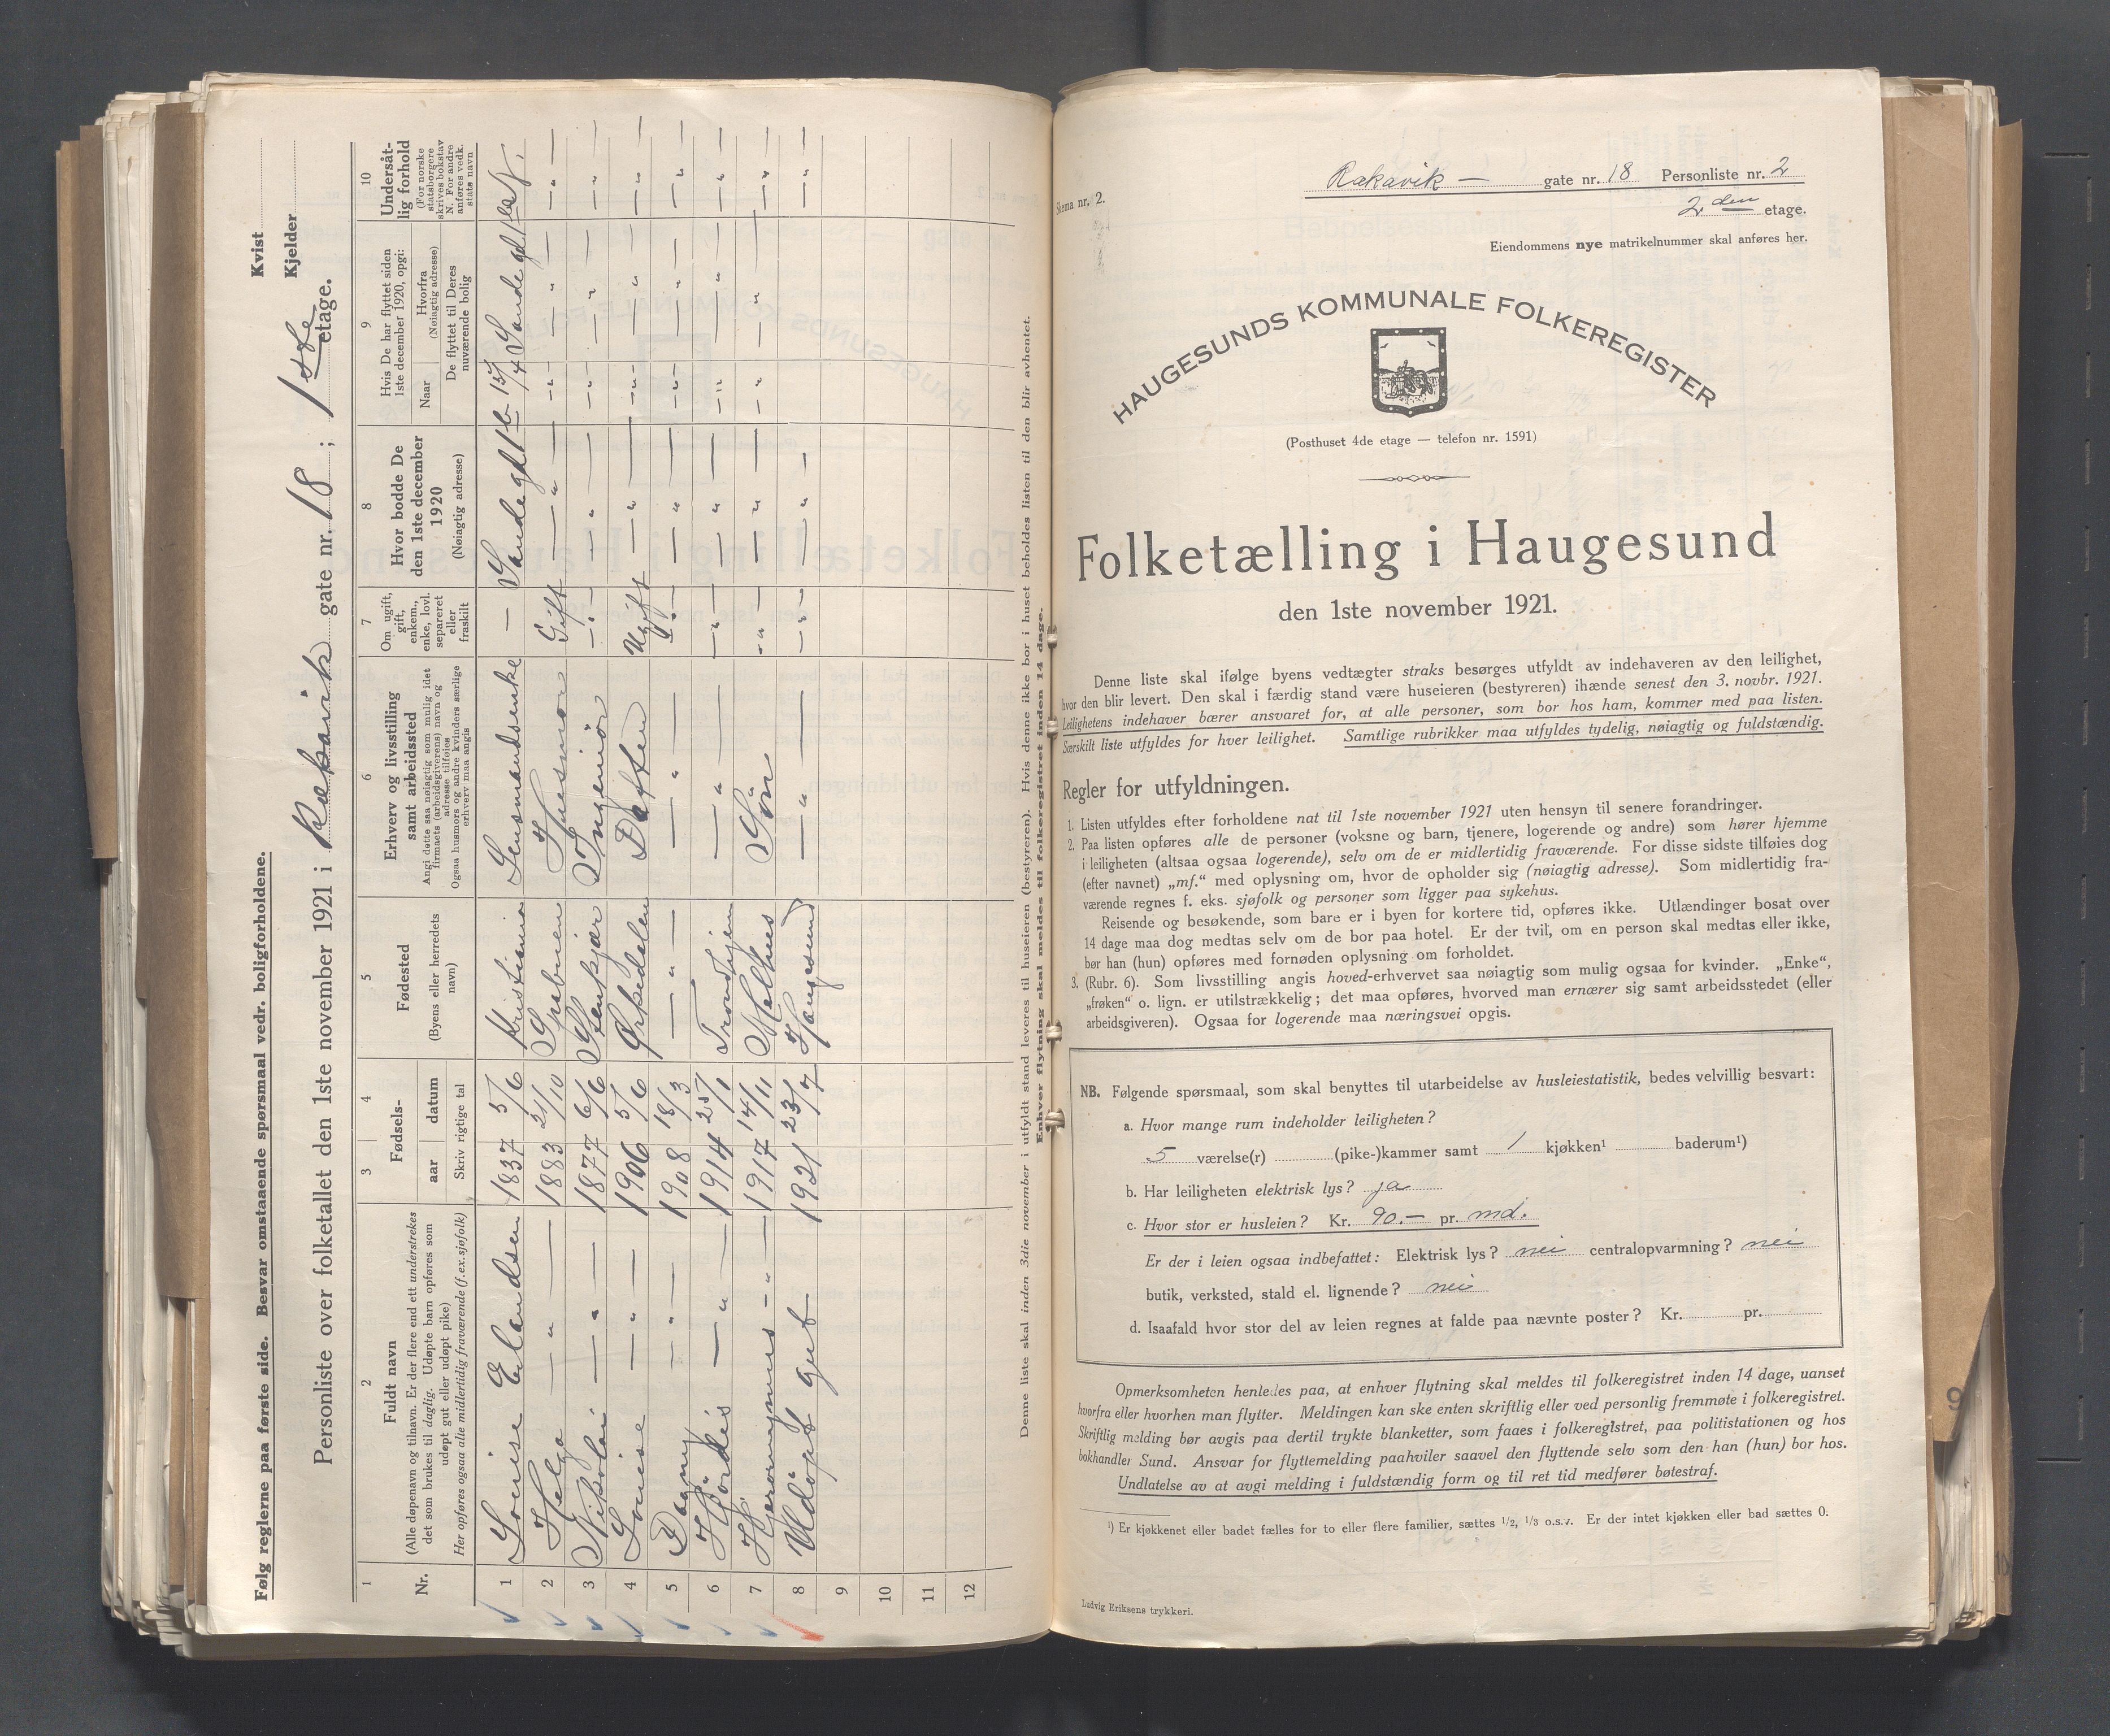 Følg reglerne paa første side. Besvar omstaaende spørsmaal vedr. boligforholdene.
Kvist
Kjelder
Personliste over folketallet den 1ste november 1921 i Rakavik gate nr. 18 ; 1ste etage.
1 2 3 4 5 6 7 8 9 10
Nr.
Fuldt navn
(Alle døpenavn og tilnavn. Er der flere end ett understrekes
det som brukes til daglig. Udøpte barn opføres som
udøpt gut eller udøpt pike)
Her opføres ogsaa alle midlertidig fraværende (f.ex.sjøfolk)
Fødsels-
aar datum
Skriv rigtige tal
Fødested
(Byens eller herredets
navn)
Erhverv og livsstilling
samt arbeidssted
Angi dette saa nøiagtig som mulig idet
firmaets (arbeidsgiverens) navn og
adresse tilføies
Ogsaa husmors og andre kvinders særlige
erhverv maa angis
Om ugift,
gift,
enkem.,
enke, lovl.
separeret
eller
fraskilt
Hvor bodde De
den 1ste december
1920
(Nøiagtig adresse)
Hvis De har flyttet siden
1ste december 1920, opgi:
Naar
Hvorfra
(Nøiagtig adresse)
De flyttet til Deres
nuværende bolig
Undersåt-
lig forhold
(For norske
statsborgere
skrives bokstav
N. For andre
anføres vedk.
stats navn
1 Louise Erlandsen 1837 5/6 Kristiania Lensmandsenke — 15/4
2 Helga — " — 1883 21/10 Husmor Gift — " —
3 Nikolai — " — 1877 6/6 Stenkjær Ingeniør — " — — " —
4 Louise — " — 1906 5/6 Ørkedalen Datter Ugift — " —
5 Dagny — " — 1908 18/3 — " — — " — — " — — " —
6 Hjördis — " — 1914 25/1 Trondhjem — " — — " — — " —
7 Hjeronymus — " — 1917 14/11 Melhus Sön — " — — " —
8 Udöpt gut 1921 23/7 Haugesund — " — — " — — " —
9
10
11
12
Denne liste skal inden 3die november i utfyldt stand leveres til huseieren (bestyreren). Hvis denne ikke bor i huset beholdes listen til den blir avhentet.
Enhver flytning skal meldes til folkeregistret inden 14 dage.
Skema nr. 2.
Rakavik — gate nr. 18 Personliste nr. 2
2den etage.
Eiendommens nye matrikelnummer skal anføres her.
HAUGESUNDS KOMMUNALE FOLKEREGISTER
(Posthuset 4de etage — telefon nr. 1591)
Folketælling i Haugesund
den 1ste november 1921.
Denne liste skal ifølge byens vedtægter straks besørges utfyldt av indehaveren av den leilighet,
hvor den blir levert. Den skal i færdig stand være huseieren (bestyreren) ihænde senest den 3. novbr. 1921.
Leilighetens indehaver bærer ansvaret for, at alle personer, som bor hos ham, kommer med paa listen.
Særskilt liste utfyldes for hver leilighet. Samtlige rubrikker maa utfyldes tydelig, nøiagtig og fuldstændig.
Regler for utfyldningen.
1. Listen utfyldes efter forholdene nat til 1ste november 1921 uten hensyn til senere forandringer.
2. Paa listen opføres alle de personer (voksne og barn, tjenere, logerende og andre) som hører hjemme
i leiligheten (altsaa ogsaa logerende), selv om de er midlertidig fraværende. For disse sidste tilføies dog
(efter navnet) „mf.“ med oplysning om, hvor de opholder sig (nøiagtig adresse). Som midlertidig fra-
værende regnes f. eks. sjøfolk og personer som ligger paa sykehus.
Reisende og besøkende, som bare er i byen for kortere tid, opføres ikke. Utlændinger bosat over
14 dage maa dog medtas selv om de bor paa hotel. Er der tvil, om en person skal medtas eller ikke,
bør han (hun) opføres med fornøden oplysning om forholdet.
3. (Rubr. 6). Som livsstilling angis hoved-erhvervet saa nøiagtig som mulig ogsaa for kvinder. „Enke“,
„frøken“ o. lign. er utilstrækkelig; det maa opføres, hvorved man ernærer sig samt arbeidsstedet (eller
arbeidsgiveren). Ogsaa for logerende maa næringsvei opgis.
NB. Følgende spørsmaal, som skal benyttes til utarbeidelse av husleiestatistik, bedes velvillig besvart:
a. Hvor mange rum indeholder leiligheten?
5 værelse(r) (pike-)kammer samt 1 kjøkken¹ baderum¹)
b. Har leiligheten elektrisk lys? ja
c. Hvor stor er husleien? Kr. 90.— pr. md.
Er der i leien ogsaa indbefattet: Elektrisk lys? nei centralopvarmning? nei
butik, verksted, stald el. lignende? nei
d. Isaafald hvor stor del av leien regnes at falde paa nævnte poster? Kr. pr.
Opmerksomheten henledes paa, at enhver flytning skal meldes til folkeregistret inden 14 dage, uanset
hvorfra eller hvorhen man flytter. Meldingen kan ske enten skriftlig eller ved personlig fremmøte i folkeregistret.
Skriftlig melding bør avgis paa dertil trykte blanketter, som faaes i folkeregistret, paa politistationen og hos
bokhandler Sund. Ansvar for flyttemelding paahviler saavel den flyttende selv som den han (hun) bor hos.
Undlatelse av at avgi melding i fuldstændig form og til ret tid medfører bøtestraf.
¹) Er kjøkkenet eller badet fælles for to eller flere familier, sættes 1/2, 1/3 o.s.v. Er der intet kjøkken eller bad sættes 0.
Ludvig Eriksens trykkeri.